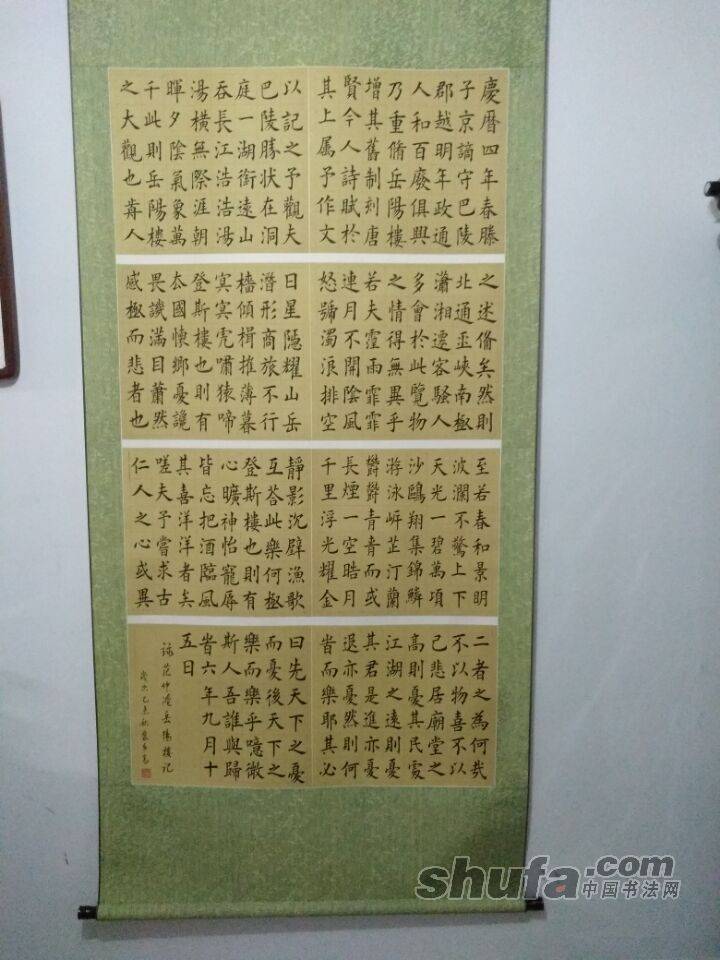 慶曆四年春滕
子京謫守巴陵
郡越明年政通
人和百廢俱興
乃重脩岳陽樓
增其舊制刻唐
賢今人詩賦於
其上属予作文
以記之予觀夫
巴陵勝狀在洞
庭一湖銜遠山
吞長江浩浩湯
湯橫無際涯朝
暉夕陰氣象萬
千此則岳陽樓
之大觀也歬人
之述俻矣然則
北通巫峽南極
瀟湘遷客騷人
多會於此覽物
之情得無異乎
若夫霪雨霏霏
連月不開陰風
怒號濁浪排空
日星隱耀山岳
潛形商旅不行
檣傾楫摧薄暮
冥冥虎嘯猿啼
登斯樓也則有
去國懷鄉憂讒
畏譏滿目蕭然
感極而悲者也
至若春和景明
波瀾不驚上下
天光一碧萬頃
沙鷗翔集錦鱗
游泳岸芷汀蘭
鬱鬱青青而或
長煙一空皓月
千里浮光耀金
靜影沉璧漁歌
互荅此樂何極
登斯樓也則有
心曠神怡寵辱
皆忘把酒臨風
其喜洋洋者矣
嗟夫予嘗求古
仁人之心或異
二者之為何哉
不以物喜不以
己悲居廟堂之
高則憂其民處
江湖之遠則憂
其君是進亦憂
退亦憂然則何
旹而樂耶其必
曰先天下之憂
而憂後天下之
樂而樂乎噫微
斯人吾誰與歸
旹六年九月十
五日
錄范仲淹岳陽樓記
歲次乙未秋
shufa.com
中国书法网